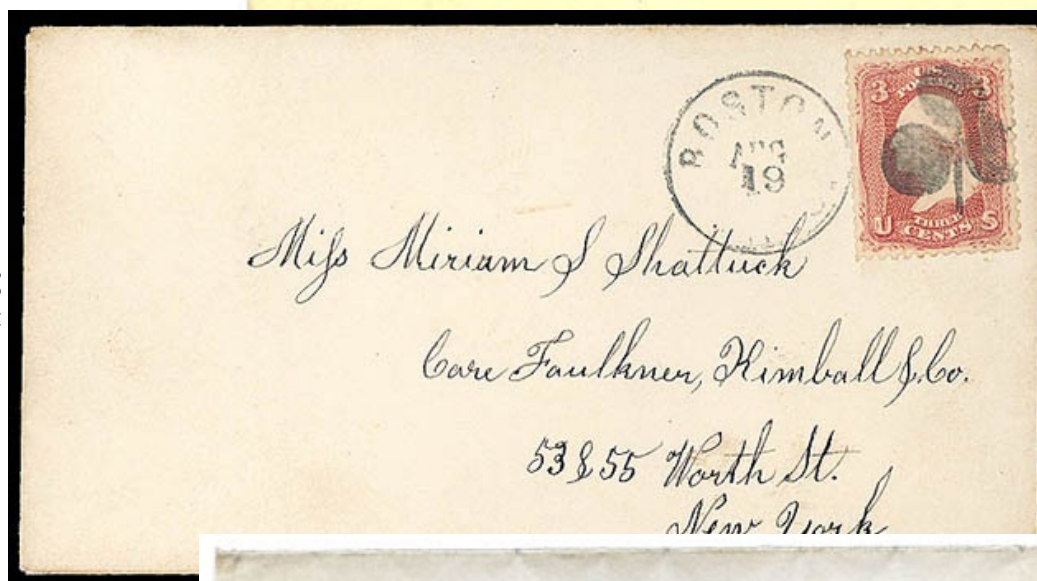 BOSTON
AUG
19
3 3
U THREE S
CENTS
Miss Miriam S Shattuck
Care Faulkner, Kimball & Co.
53 & 55 Worth St.
New York